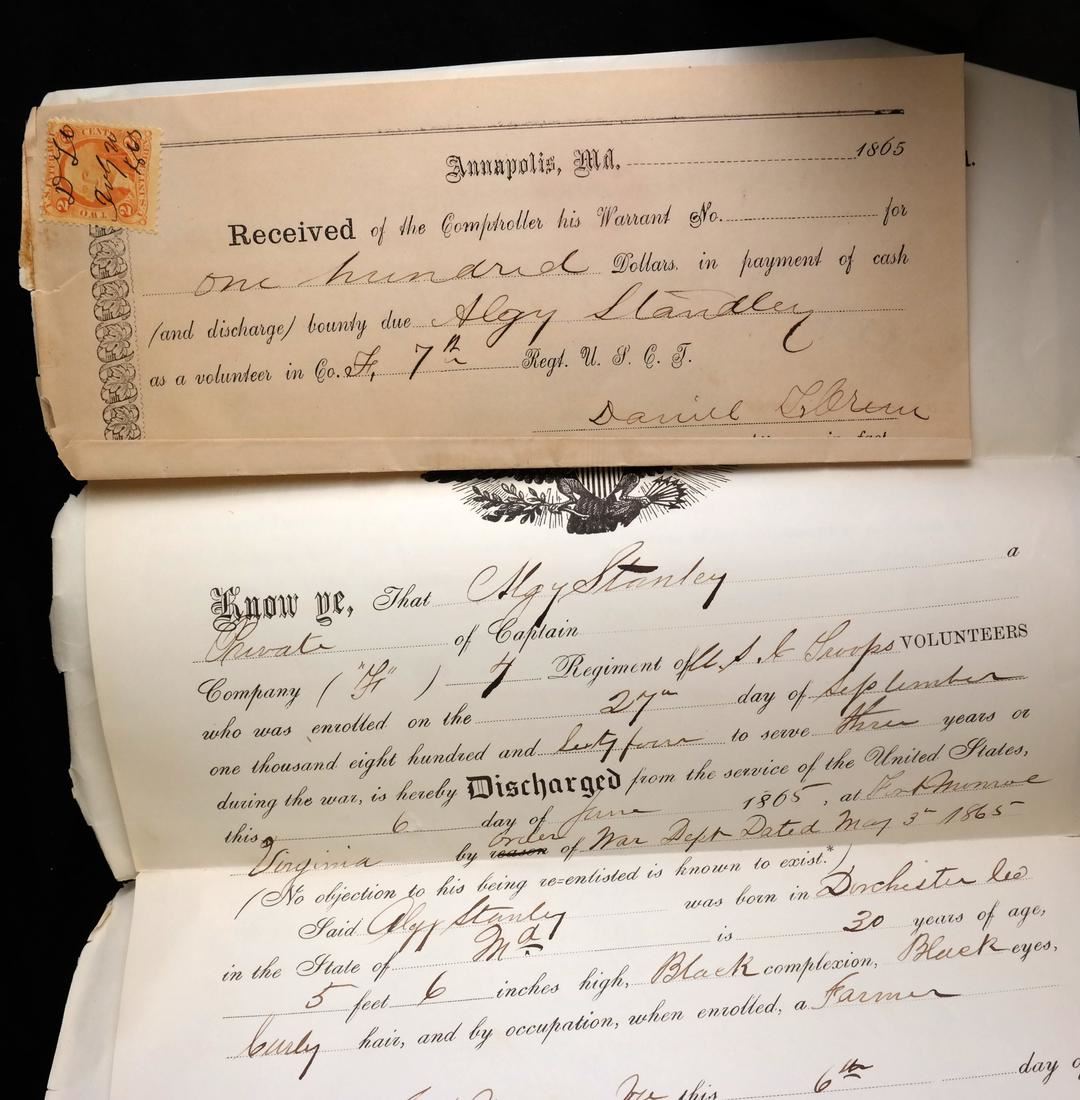 TWO CENTS
Annapolis, Md. 1865
Received of the Comptroller his Warrant No. for
one hundred Dollars. in payment of cash
/and discharge/ bounty due Algy Standley
as a volunteer in Co. F, 7th Regt. U. S. C. T.
Daniel
in fact
Know ye, That Algy Stanley a
Private of Captain
Company ("F") 7 Regiment of U. S. C. Troops VOLUNTEERS
who was enrolled on the 27th day of September
one thousand eight hundred and to serve three years or
during the war, is hereby Discharged from the service of the United States,
this 6 day of June 1865, at Fort Monroe
Virginia by reason order of War Dept Dated May 3d 1865
(No objection to his being re-enlisted is known to exist.*)
Said Algy Stanley was born in Dorchester Co
in the State of Md is 30 years of age,
5 feet 6 inches high, Black complexion, Black eyes,
Curly hair, and by occupation, when enrolled, a Farmer
this 6th day